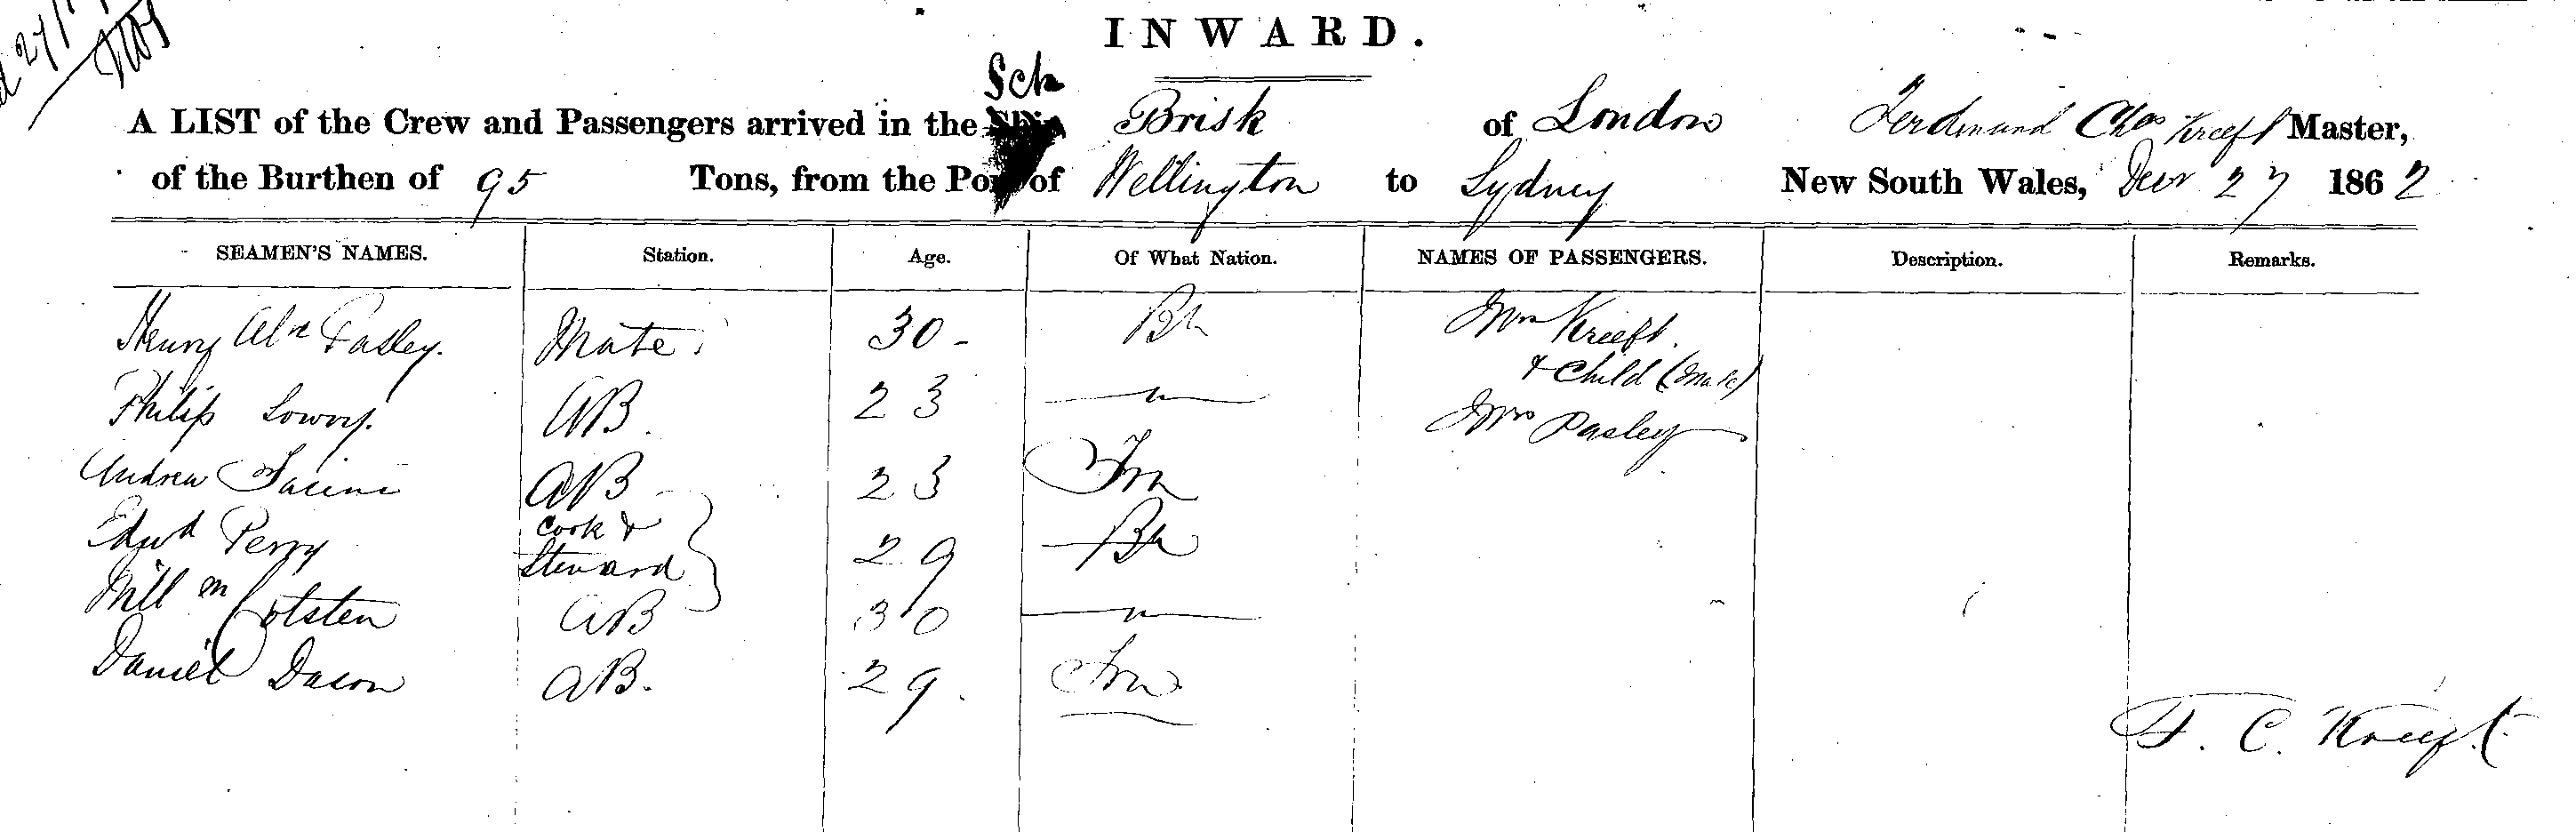 INWARD.
Sch
A LIST of the Crew and Passengers arrived in the Ship Brisk of London Ferdinand Chas Kreeft Master,
of the Burthen of 95 Tons, from the Port of Wellington to Sydney New South Wales, Decr 27 1862
SEAMEN'S NAMES. Station. Age. Of What Nation. NAMES OF PASSENGERS. Description. Remarks.
Henry Alxr Pasley. Mate. 30 - Bh Mrs Kreeft.
& Child (Male)
Philip Lowry. AB. 23 — " — Mrs Pasley
Andrew AB 23 Frn
Edwd Perry Cook & Steward 29 Bh
Willm Colsten AB 30 — " —
Daniel Dacon AB. 29. Frn
F. C. Kreeft